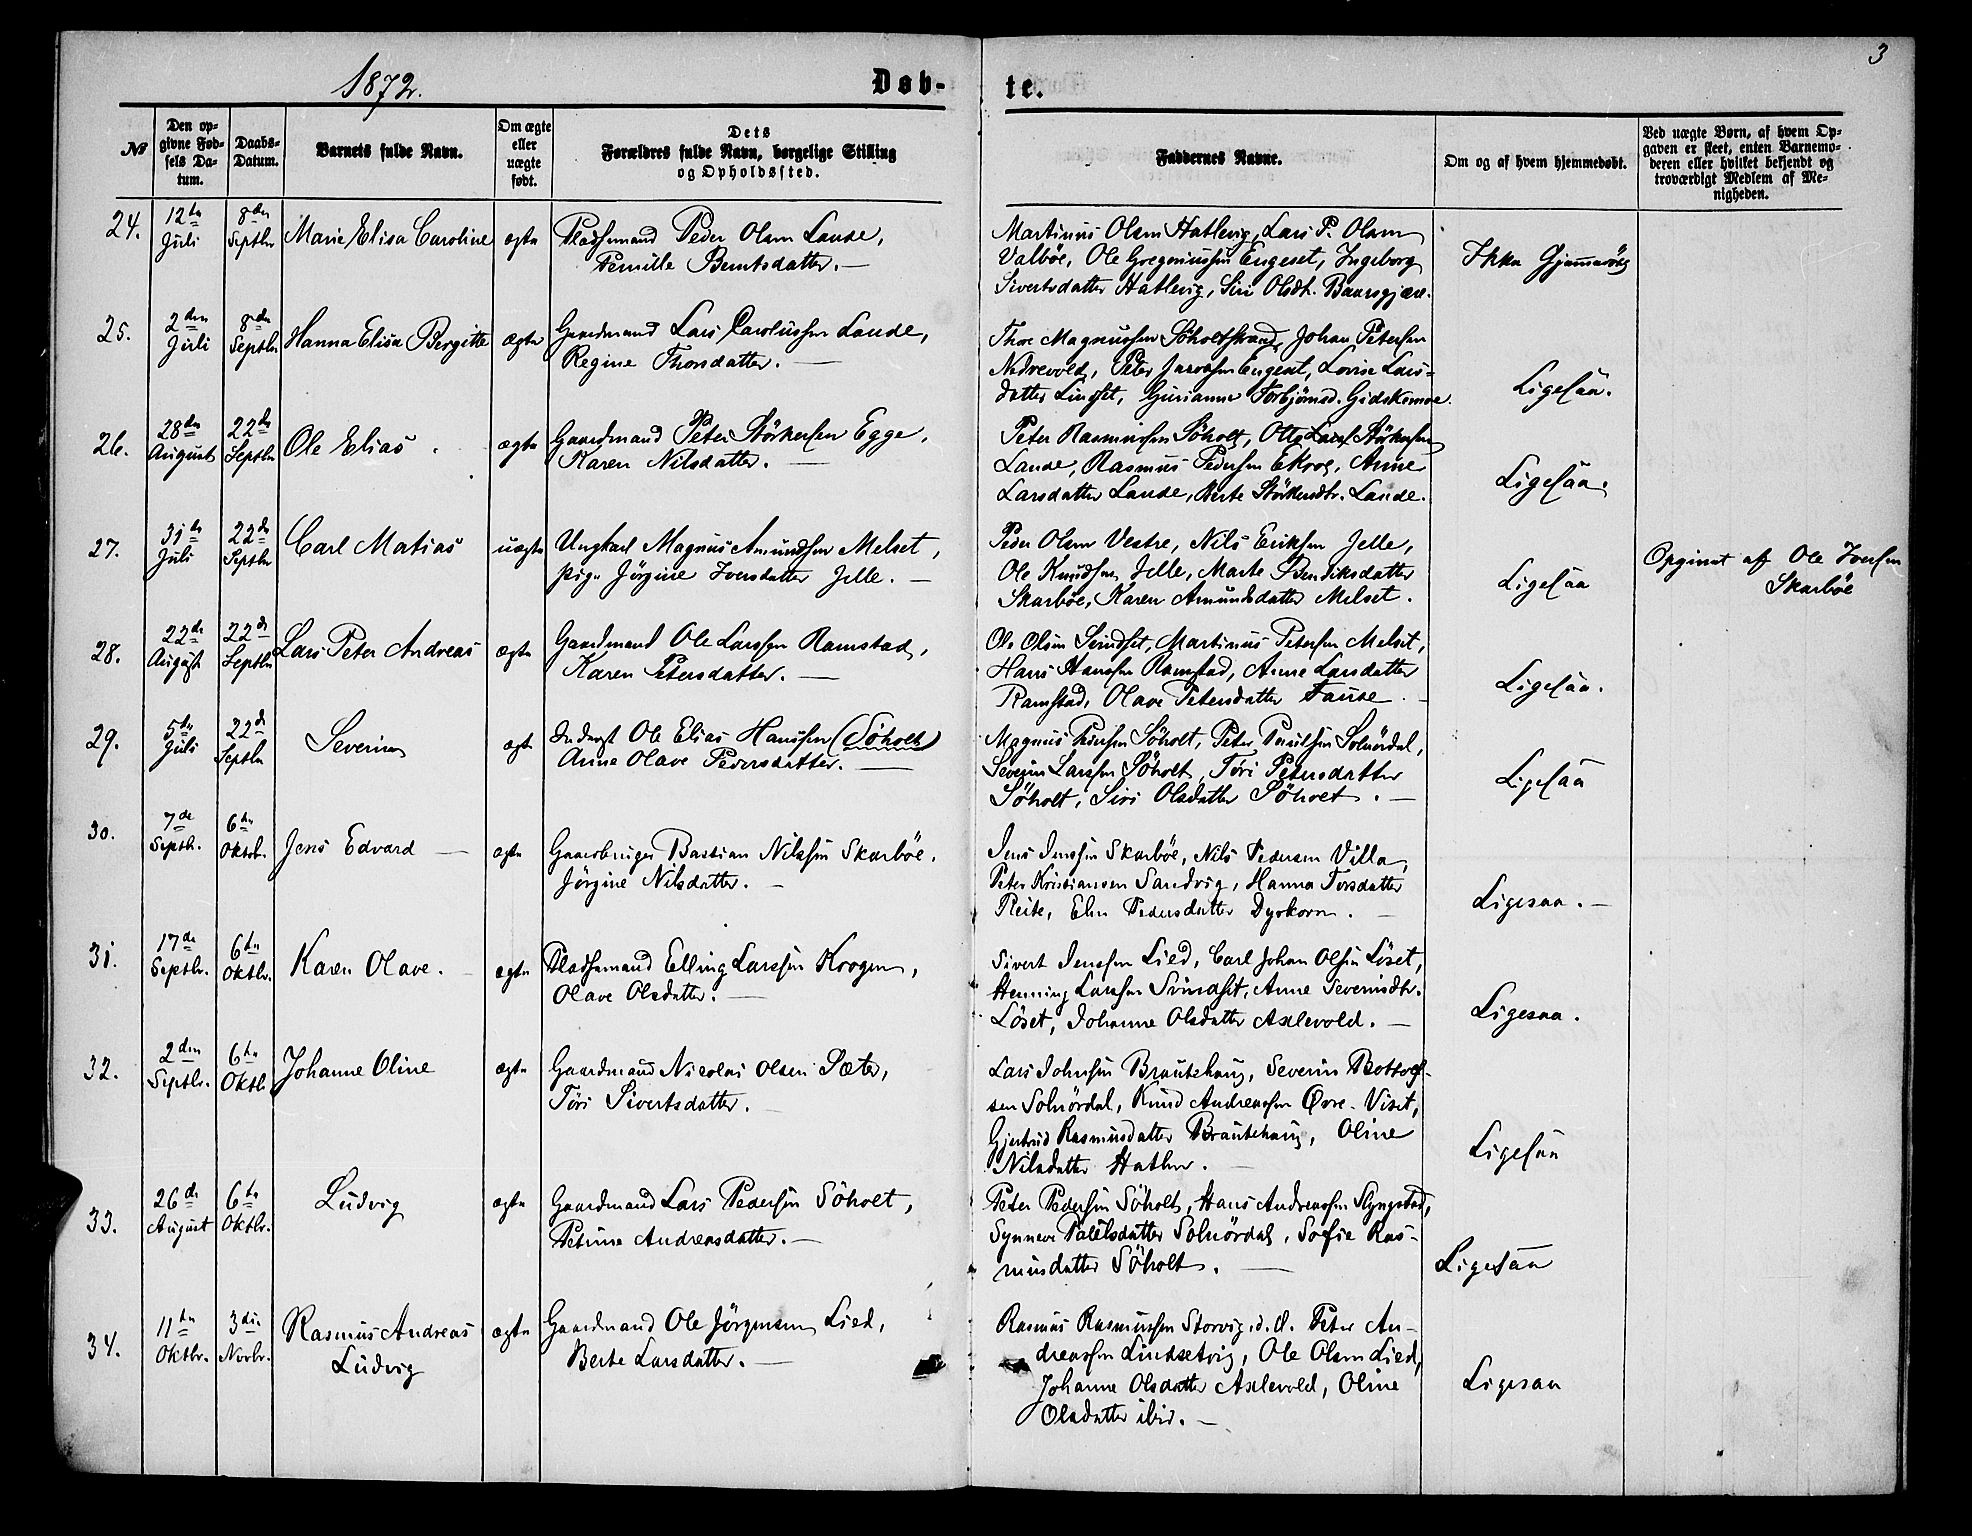 3
1872.
Døb-
te.
No
Den op-
givne Fød-
sels Da-
tum.
Daabs-
Datum.
Barnets fulde Navn.
Om ægte
eller
uægte
født.
Dets
Forældres fulde Navn, borgelige Stilling
og Opholdssted.
Faddernes Navne.
Om og af hvem hjemmedøbt.
Ved uægte Børn, af hvem Op-
gaven er skeet, enten Barnemo-
deren eller hvilket bekjendt og
troværdigt Medlem af Me-
nigheden.
24. 12te Juli 8de Septbr Marie Elisa Caroline ægte Pladsemand Peder Olsen Lande,
Pernille Berntsdatter. —
Martinus Olsen Hatlevig, Lars P. Olsen
Valböe, Ole Gregoriussen Engeset, Ingeborg
Sivertsdatter Hatlevig, Siri Olsdt.
Ikke Hjemmedöbt
25. 2den Juli 8de Septbr Hanna Elisa Bergitte ægte Gaardmand Lars Carolussen Lande,
Regine Thorsdatter. —
Thore Magnussen Söholtstrand, Johan Petersen
Nedrevold, Peter Engeset, Lovise Lars-
datter Lindset, Gurianne Torbjörnsd.
Ligesaa.
26. 28de August 22de Septbr Ole Elias. ægte Gaardmand Peter Störkersen Egge,
Karen Nilsdatter. —
Peter Rasmussen Söholt, Störkersen
Lande, Rasmus Pedersen Ekrog, Anne
Larsdatter Lande, Berte Störkersdtr. Lande.
Ligesaa.
27. 31de Juli 22de Septbr Carl Matias uægte Ungkarl Magnus Amundsen Melset,
Pige Jörgine Iversdatter Jelle. —
Peder Olsen Vestre, Nils Eriksen Jelle,
Ole Knudsen Jelle, Marte Bendiksdatter
Skarböe, Karen Amundsdatter Melset.
Ligesaa
Opgivet af Ole Iversen
Skarböe
28. 22de August 22de Septbr Lars Peter Andreas ægte Gaardmand Ole Larssen Ramstad,
Karen Petersdatter. —
Ole Olsen Svindset, Martinus Petersen Melset,
Hans Hanssen Ramstad, Anne Larsdatter
Ramstad, Olave Petersdatter Fause.
Ligesaa.
29. 5te Juli 22de Septbr Severin ægte Inderst Ole Elias Hanssen (Söholt)
Anne Olave Pedersdatter. —
Magnus Pedersen Söholt, Peter Paulsen Solnördal,
Severin Larssen Söholt, Töri Petersdatter
Söholt, Siri Olsdatter Söholt. —
Ligesaa
30. 7de Septbr. 6te Oktbr. Jens Edvard — ægte Gaardbruger Bastian Nilssen Skarböe.
Jörgine Nilsdatter. —
Jens Jenssen Skarböe, Nils Pedersen Villa,
Peter Kristiansen Sandvig, Hanna Torsdatter
Reite, Elen Pedersdatter Dyrkorn. —
Ligesaa. —
31. 17de Septbr. 6te Oktbr. Karen Olave. ægte Pladsemand Elling Larssen Krogen,
Olave Olsdatter. —
Sivert Jenssen Lied, Carl Johan Olsen Löset,
Henning Larssen Svindset, Anne Severinsdtr.
Löset, Johanne Olsdatter Axlevold. —
Ligesaa.
32. 2den Septbr. 6te Oktbr Johanne Oline ægte Gaardmand Nicolai Olsen Sæter,
Töri Sivertsdatter. —
Lars Johnsen Brautehaug, Severin Bottolf-
sen Solnördal, Knud Andreassen Øvre-Viset,
Gjertrud Rasmusdatter Brautehaug, Oline
Nilsdatter Hatlen. —
Ligesaa
33. 26de August 6te Oktbr. Ludvig ægte Gaardmand Lars Pedersen Söholt,
Petrine Andreasdatter. —
Peter Pedersen Söholt, Hans Andreassen Slyngstad,
Synneve Paulsdatter Solnördal, Sofie Ras-
musdatter Söholt. —
Ligesaa
34. 11te Oktbr. 3die Novbr. Rasmus Andreas
Ludvig ægte Gaardmand Ole Jörgensen Lied,
Berte Larsdatter. —
Rasmus Rasmussen Storvig, Peter An-
dreassen Lindsetvig, Ole Olsen Lied,
Johanne Olsdatter Axlevold, Oline
Olsdatter ibid. —
Ligesaa